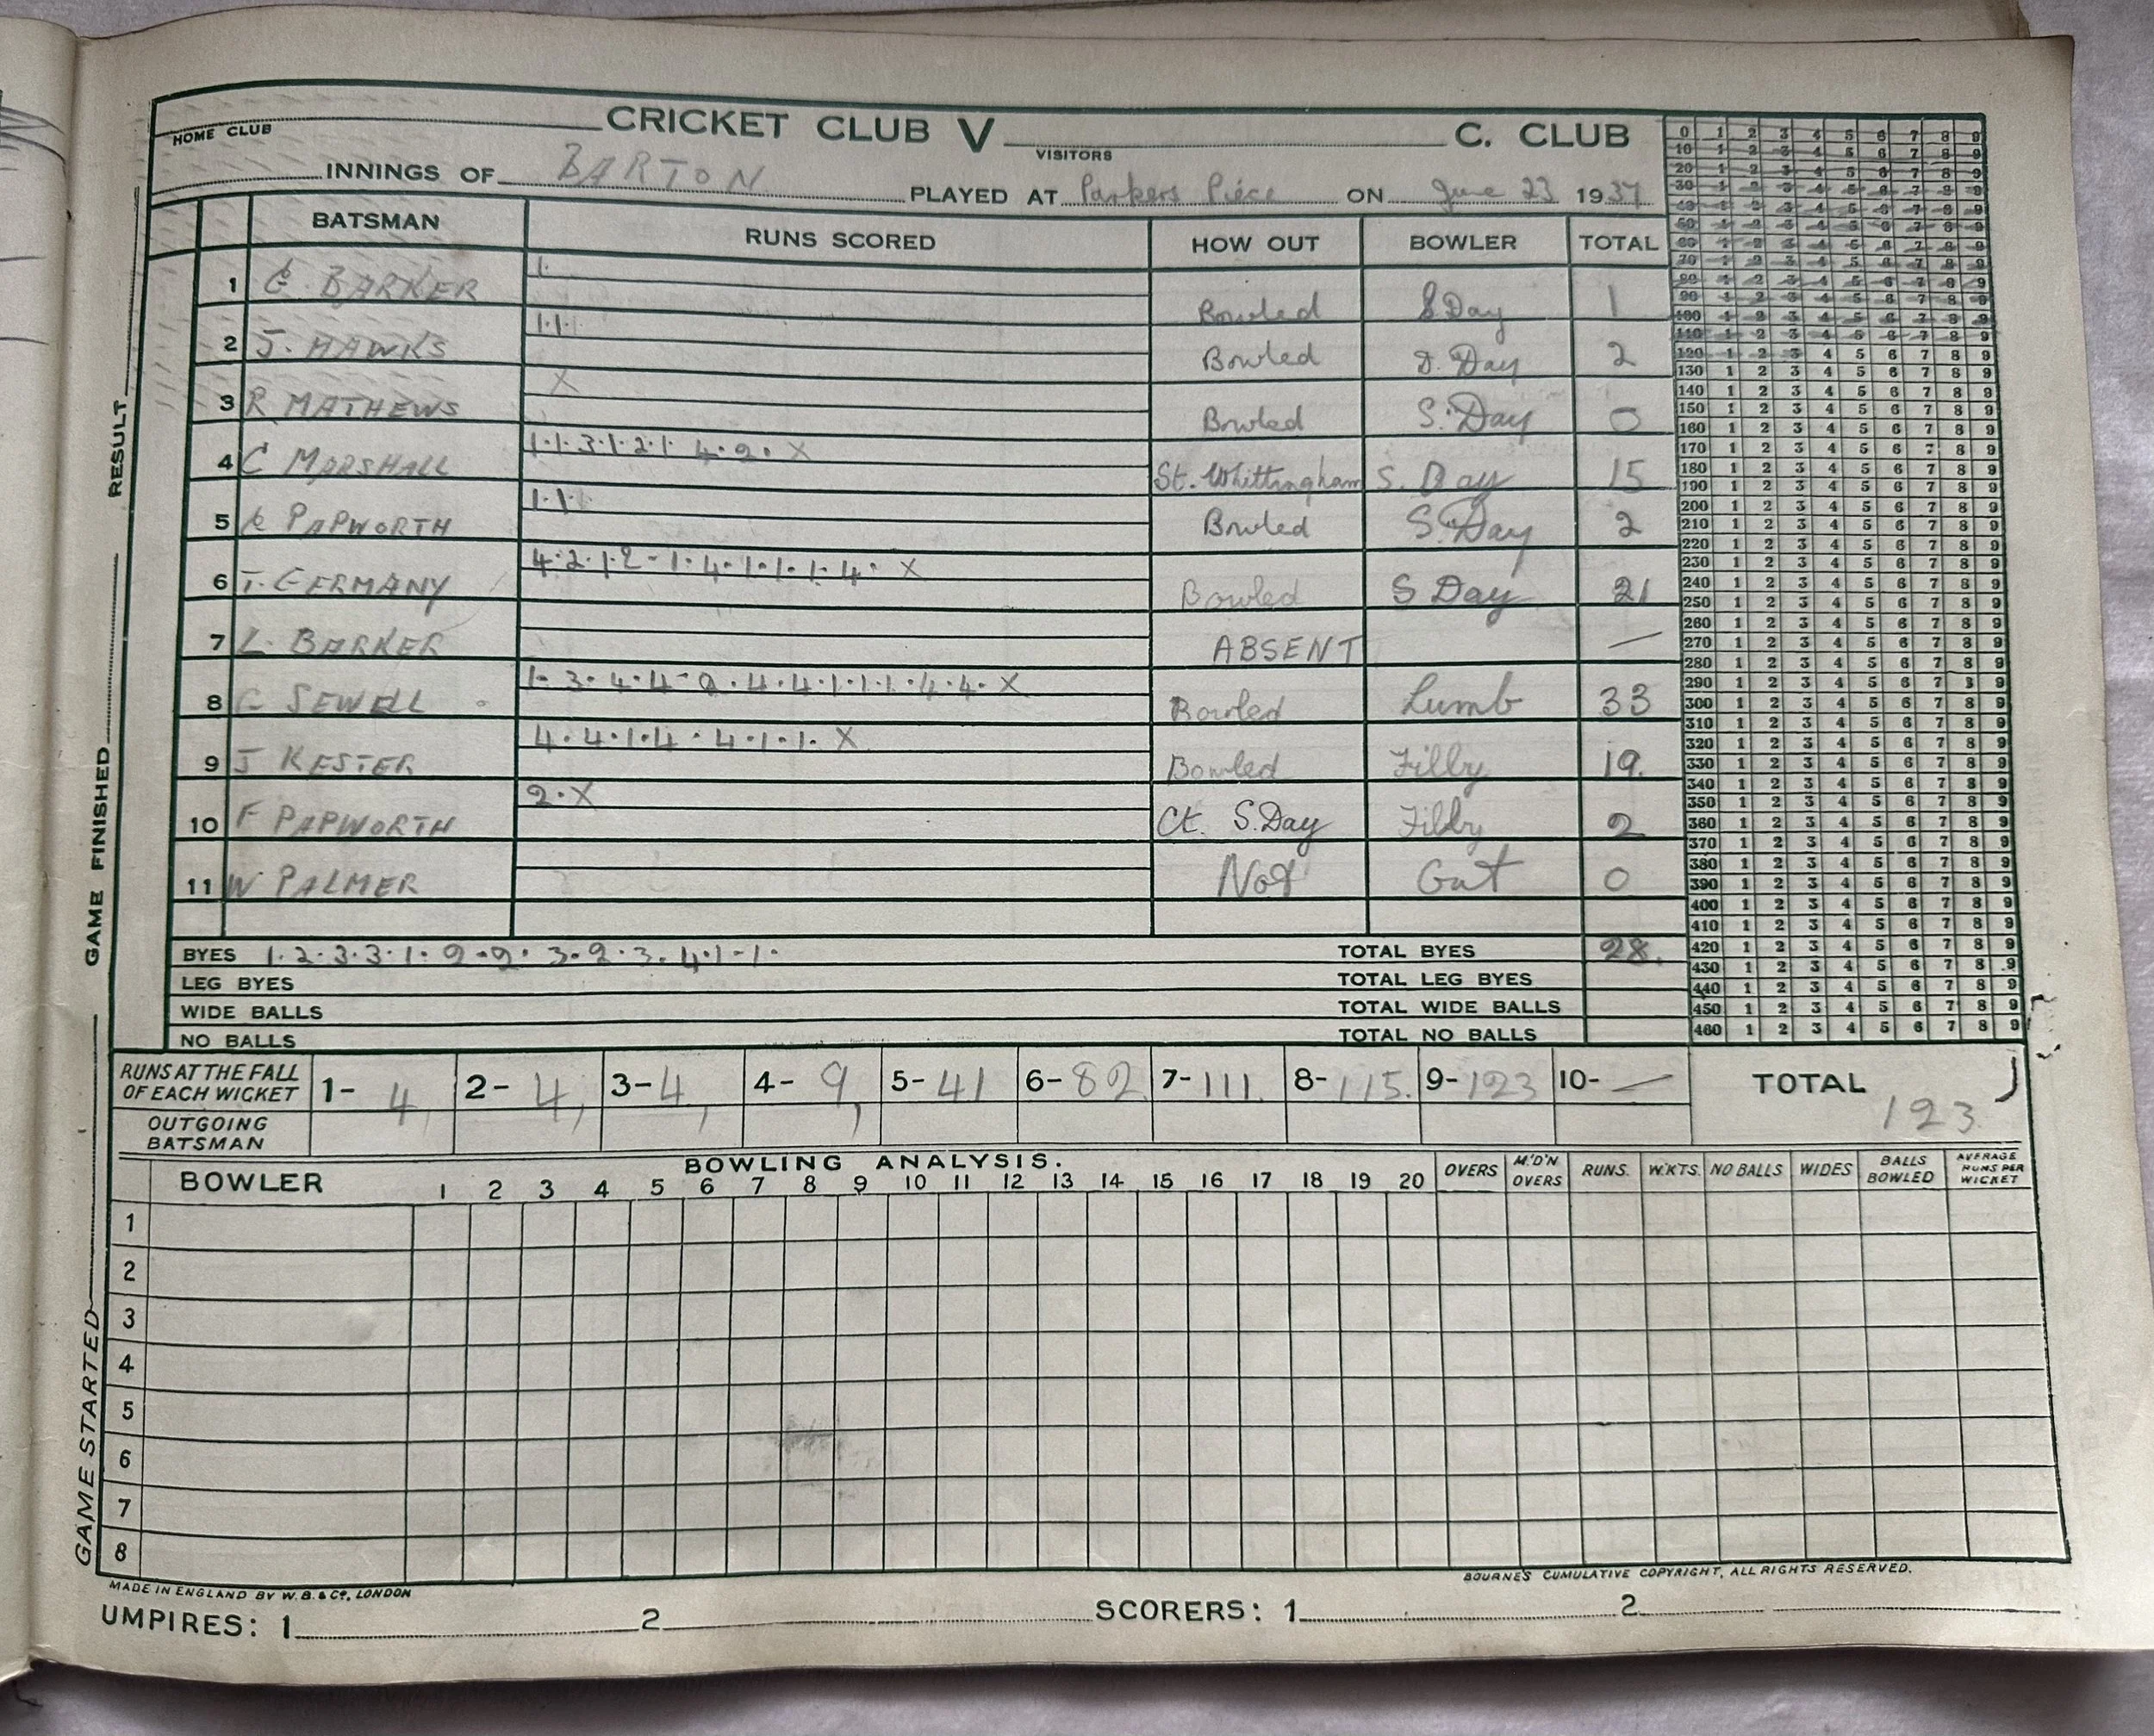 HOME CLUB CRICKET CLUB V VISITORS C. CLUB
INNINGS OF BARTON PLAYED AT Parkers Piece ON June 23 1937
BATSMAN RUNS SCORED HOW OUT BOWLER TOTAL
1 BARKER 1. Bowled S Day 1
2 J. HAWKS 1.1. Bowled S. Day 2
3 R MATHEWS X Bowled S. Day 0
4 C MARSHALL 1.1.3.1.2.1 4.2. X St. Whittingham S. Day 15
5 PAPWORTH 1.1. Bowled S. Day 2
6 T. GERMANY 4.2.1.2-1.4.1.1.1.4. X Bowled S Day 21
7 L. BARKER ABSENT —
8 SEWELL 1.3.4.4.2.4.4.1.1.1.4.4. X Bowled Lumb 33
9 J KESTER 4.4.1.4.4.1.1. X Bowled Filby 19.
10 F PAPWORTH 2.X Ct. S.Day Filby 2
11 W PALMER Not Out 0
BYES 1.2.3.3.1.2.2.3.2.3.4.1-1. TOTAL BYES 28.
LEG BYES TOTAL LEG BYES
WIDE BALLS TOTAL WIDE BALLS
NO BALLS TOTAL NO BALLS
RUNS AT THE FALL OF EACH WICKET 1- 4, 2- 4, 3- 4, 4- 9, 5- 41 6- 82 7- 111. 8- 115. 9- 123 10- — TOTAL 123
OUTGOING BATSMAN
BOWLING ANALYSIS.
BOWLER 1 2 3 4 5 6 7 8 9 10 11 12 13 14 15 16 17 18 19 20 OVERS M.'D'N OVERS RUNS. W.KTS. NO BALLS WIDES BALLS BOWLED AVERAGE RUNS PER WICKET
1
2
3
4
5
6
7
8
MADE IN ENGLAND BY W.B. & Co, LONDON BOURNE'S CUMULATIVE COPYRIGHT, ALL RIGHTS RESERVED.
UMPIRES: 1 2 SCORERS: 1 2
GAME STARTED GAME FINISHED RESULT
0 1 2 3 4 5 6 7 8 9
10 1 2 3 4 5 6 7 8 9
20 1 2 3 4 5 6 7 8 9
30 1 2 3 4 5 6 7 8 9
40 1 2 3 4 5 6 7 8 9
50 1 2 3 4 5 6 7 8 9
60 1 2 3 4 5 6 7 8 9
70 1 2 3 4 5 6 7 8 9
80 1 2 3 4 5 6 7 8 9
90 1 2 3 4 5 6 7 8 9
100 1 2 3 4 5 6 7 8 9
110 1 2 3 4 5 6 7 8 9
120 1 2 3 4 5 6 7 8 9
130 1 2 3 4 5 6 7 8 9
140 1 2 3 4 5 6 7 8 9
150 1 2 3 4 5 6 7 8 9
160 1 2 3 4 5 6 7 8 9
170 1 2 3 4 5 6 7 8 9
180 1 2 3 4 5 6 7 8 9
190 1 2 3 4 5 6 7 8 9
200 1 2 3 4 5 6 7 8 9
210 1 2 3 4 5 6 7 8 9
220 1 2 3 4 5 6 7 8 9
230 1 2 3 4 5 6 7 8 9
240 1 2 3 4 5 6 7 8 9
250 1 2 3 4 5 6 7 8 9
260 1 2 3 4 5 6 7 8 9
270 1 2 3 4 5 6 7 8 9
280 1 2 3 4 5 6 7 8 9
290 1 2 3 4 5 6 7 8 9
300 1 2 3 4 5 6 7 8 9
310 1 2 3 4 5 6 7 8 9
320 1 2 3 4 5 6 7 8 9
330 1 2 3 4 5 6 7 8 9
340 1 2 3 4 5 6 7 8 9
350 1 2 3 4 5 6 7 8 9
360 1 2 3 4 5 6 7 8 9
370 1 2 3 4 5 6 7 8 9
380 1 2 3 4 5 6 7 8 9
390 1 2 3 4 5 6 7 8 9
400 1 2 3 4 5 6 7 8 9
410 1 2 3 4 5 6 7 8 9
420 1 2 3 4 5 6 7 8 9
430 1 2 3 4 5 6 7 8 9
440 1 2 3 4 5 6 7 8 9
450 1 2 3 4 5 6 7 8 9
460 1 2 3 4 5 6 7 8 9